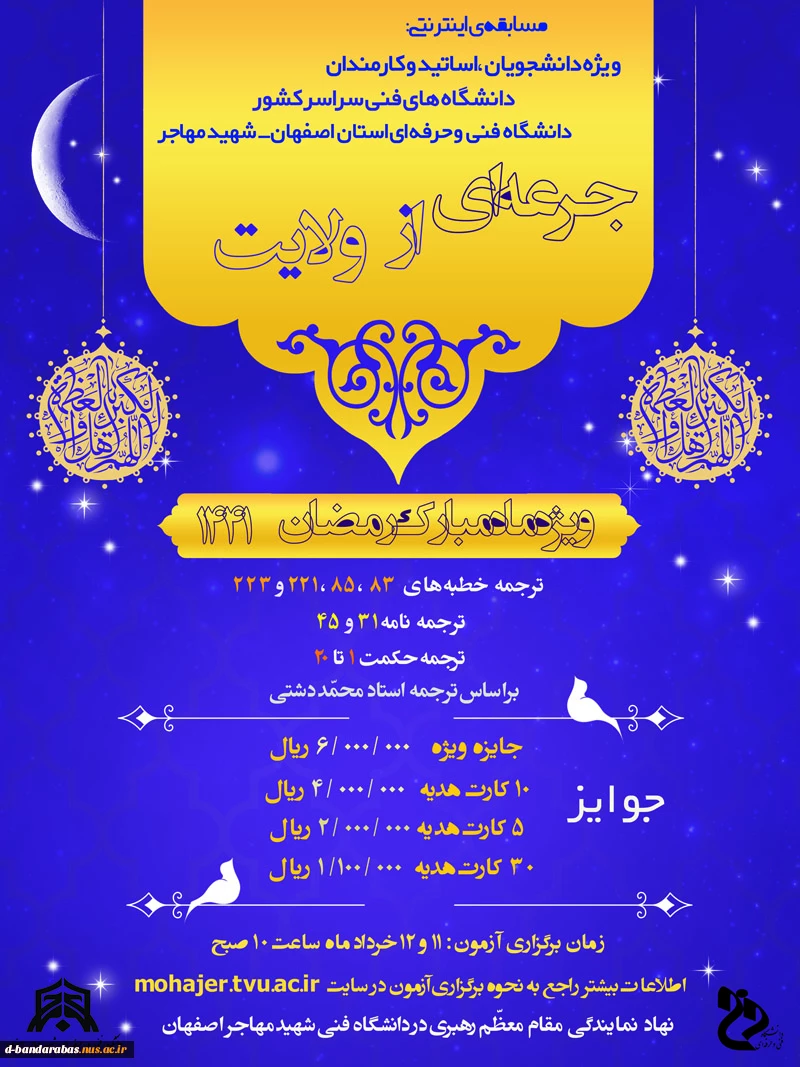 مسابقه‌ی اینترنتی:
ویژه دانشجویان ،اساتید و کارمندان
دانشگاه های فنی سراسر کشور
دانشگاه فنی وحرفه‌ای استان اصفهان_ شهید مهاجر
جرعه‌ای از ولایت
ویژه ماه مبارک رمضان ۱۴۴۱
ترجمه خطبه های ۸۳ ،۸۵ ،۲۲۱ و ۲۲۳
ترجمه نامه ۳۱ و ۴۵
ترجمه حکمت ۱ تا ۲۰
براساس ترجمه استاد محمّد دشتی
جوایز
جایزه ویژه ۶/۰۰۰/۰۰۰ ریال
۱۰ کارت هدیه ۴/۰۰۰/۰۰۰ ریال
۵ کارت هدیه ۲/۰۰۰/۰۰۰ ریال
۳۰ کارت هدیه ۱/۱۰۰/۰۰۰ ریال
زمان برگزاری آزمون : ۱۱ و ۱۲ خرداد ماه ساعت ۱۰ صبح
اطلاعات بیشتر راجع به نحوه برگزاری آزمون در سایت mohajer.tvu.ac.ir
نهاد نمایندگی مقام معظّم رهبری در دانشگاه فنی شهید مهاجر اصفهان
d-bandarabas.nus.ac.ir